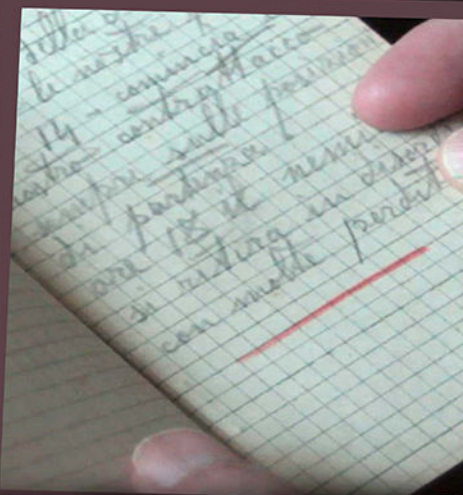 della
le nostre
14 - comincia
nostro contrattacco
sempre sulle posizioni
di partenza
ore 18 il nemi
si ritira in disord
con molte perdit